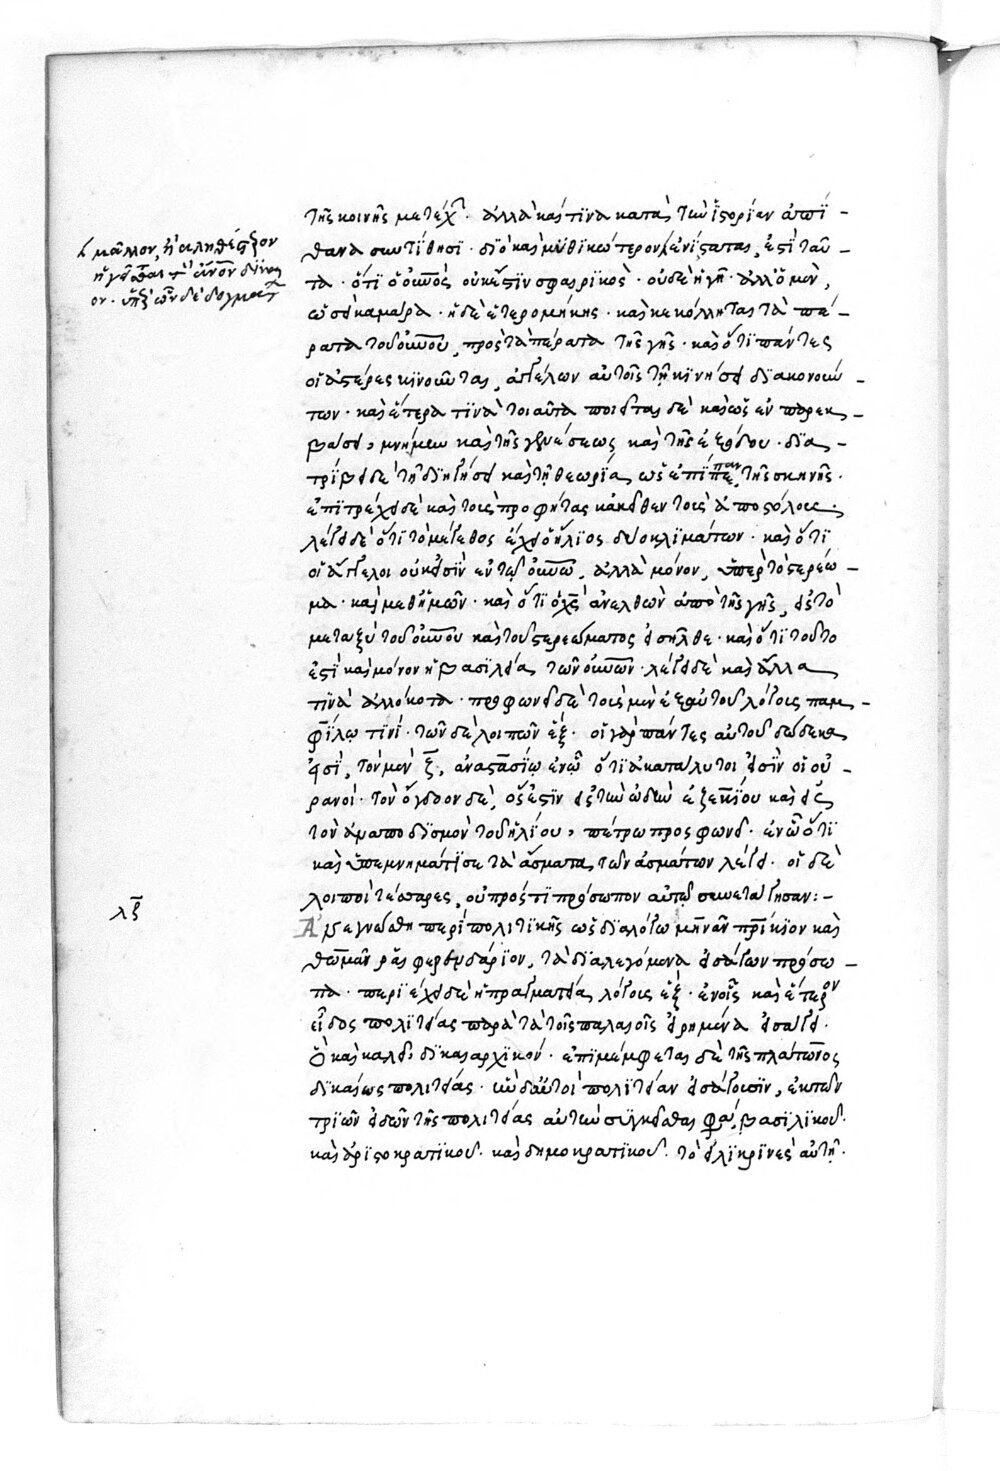 μᾶλλον, ἢ ἀληθέστερον
ἡγεῖσθαι τὸν ἄνθρωπον δίκαι
ον· ὑπὲρ ὧν δὲ δογμάτ
τῆς κοινῆς μετέχ· ἀλλὰ καί τινα κατὰ τὴν ἱστορίαν ἀπί -
θανα συντίθησι· διὸ καὶ μυθικώτερον ἐνίσταται, ἐστὶ ταῦ -
τα· ὅτι ὁ οὐνὸς οὐκ ἔστιν σφαιρικὸς· οὐδὲ ἡ γῆ· ἀλλ' ὁ μὲν,
ὡσεὶ καμάρα· ἡ δὲ ἑτερομήκης· καὶ κεκόλληται τὰ πέ -
ρατα τοῦ οὐνοῦ, πρὸς τὰ πέρατα τῆς γῆς· καὶ ὅτι πάντες
οἱ ἀστέρες κινοῦνται, ἀγγέλων αὐτοῖς τῇ κινήσει διακονούν -
των· καὶ ἕτερα τινὰ τοιαῦτα· ποιεῖται δὲ καὶ ὡς ἐν παρεκ -
βάσει, μνήμην καὶ τῆς γενέσεως καὶ τῆς ἐξόδου· δια -
τρίβει δὲ τῇ διηγήσει καὶ τῇ θεωρίᾳ ὡς ἐπίπαν, τῆς σκηνῆς·
ἐπιτρέχει δὲ καὶ τοὺς προφήτας κἀκεῖθεν τοὺς ἀποστόλους·
λέγει δὲ ὅτι τὸ μέγεθος ἔχει ὁ ἥλιος δύο κλιμάτων· καὶ ὅτι
οἱ ἄγγελοι οὐκ εἰσὶν ἐν τῷ οὐνῷ, ἀλλὰ μόνον, ὑπὲρ τὸ στερέω -
μα· καὶ μεθ' ἡμῶν· καὶ ὅτι ὁ χς ἀνελθὼν ἀπὸ τῆς γῆς, εἰς τὸ
μεταξὺ τοῦ οὐνοῦ καὶ τοῦ στερεώματος εἰσῆλθε· καὶ ὅτι τοῦτο
ἐστὶ καὶ μόνον ἡ βασιλεία τῶν οὐνῶν· λέγει δὲ καὶ ἄλλα
τινὰ ἀλλόκοτα· προσφωνεῖ δὲ τοὺς μὲν ἓξ αὐτοῦ λόγους παμ -
φίλῳ τινί· τῶν δὲ λοιπῶν ἓξ· οἱ γὰρ πάντες αὐτοῦ δώδεκα
εἰσὶ, τὸν μὲν ζ, ἀναστασίῳ ἐν ᾧ ὅτι ἀκατάλυτοι εἰσὶν οἱ οὐ -
ρανοί· τὸν ὄγδοον δὲ, ὅς ἐστιν εἰς τὴν ᾠδὴν ἐζεκίου καὶ εἰς
τὸν ἀναποδισμὸν τοῦ ἡλίου, πέτρῳ προσφωνεῖ· ἐν ᾧ ὅτι
καὶ ὑπεμνημάτισε τὰ ᾄσματα τῶν ᾀσμάτων λέγει· οἱ δὲ
λοιποὶ τέσσαρες, οὐ πρός τι πρόσωπον αὐτῷ συνετάγησαν:-
λζ
Ἀνεγνώσθη περὶ πολιτικῆς ὡς διαλόγῳ μηνᾶν πρίκιον καὶ
θωμᾶν ῥαιφερενδάριον, τὰ διαλεγόμενα εἰσάγων πρόσω -
πα· περιέχει δὲ ἡ πραγματεία λόγους ἓξ· ἐν οἷς καὶ ἕτερον
εἶδος πολιτείας παρὰ τὰ τοῖς παλαιοῖς εἰρημένα εἰσάγει·
ὃ καὶ καλεῖ, δικαιαρχικόν· ἐπιμέμφεται δὲ τῆς πλάτωνος
δικαίως πολιτείας· ἣν δ' αὐτοὶ πολιτείαν εἰσάγουσιν, ἐκ τῶν
τριῶν εἰδῶν τῆς πολιτείας αὐτὴν συγκεῖσθαι φασὶ, βασιλικοῦ·
καὶ ἀριστοκρατικοῦ· καὶ δημοκρατικοῦ· τὸ εἰλικρινὲς αὐτῇ·